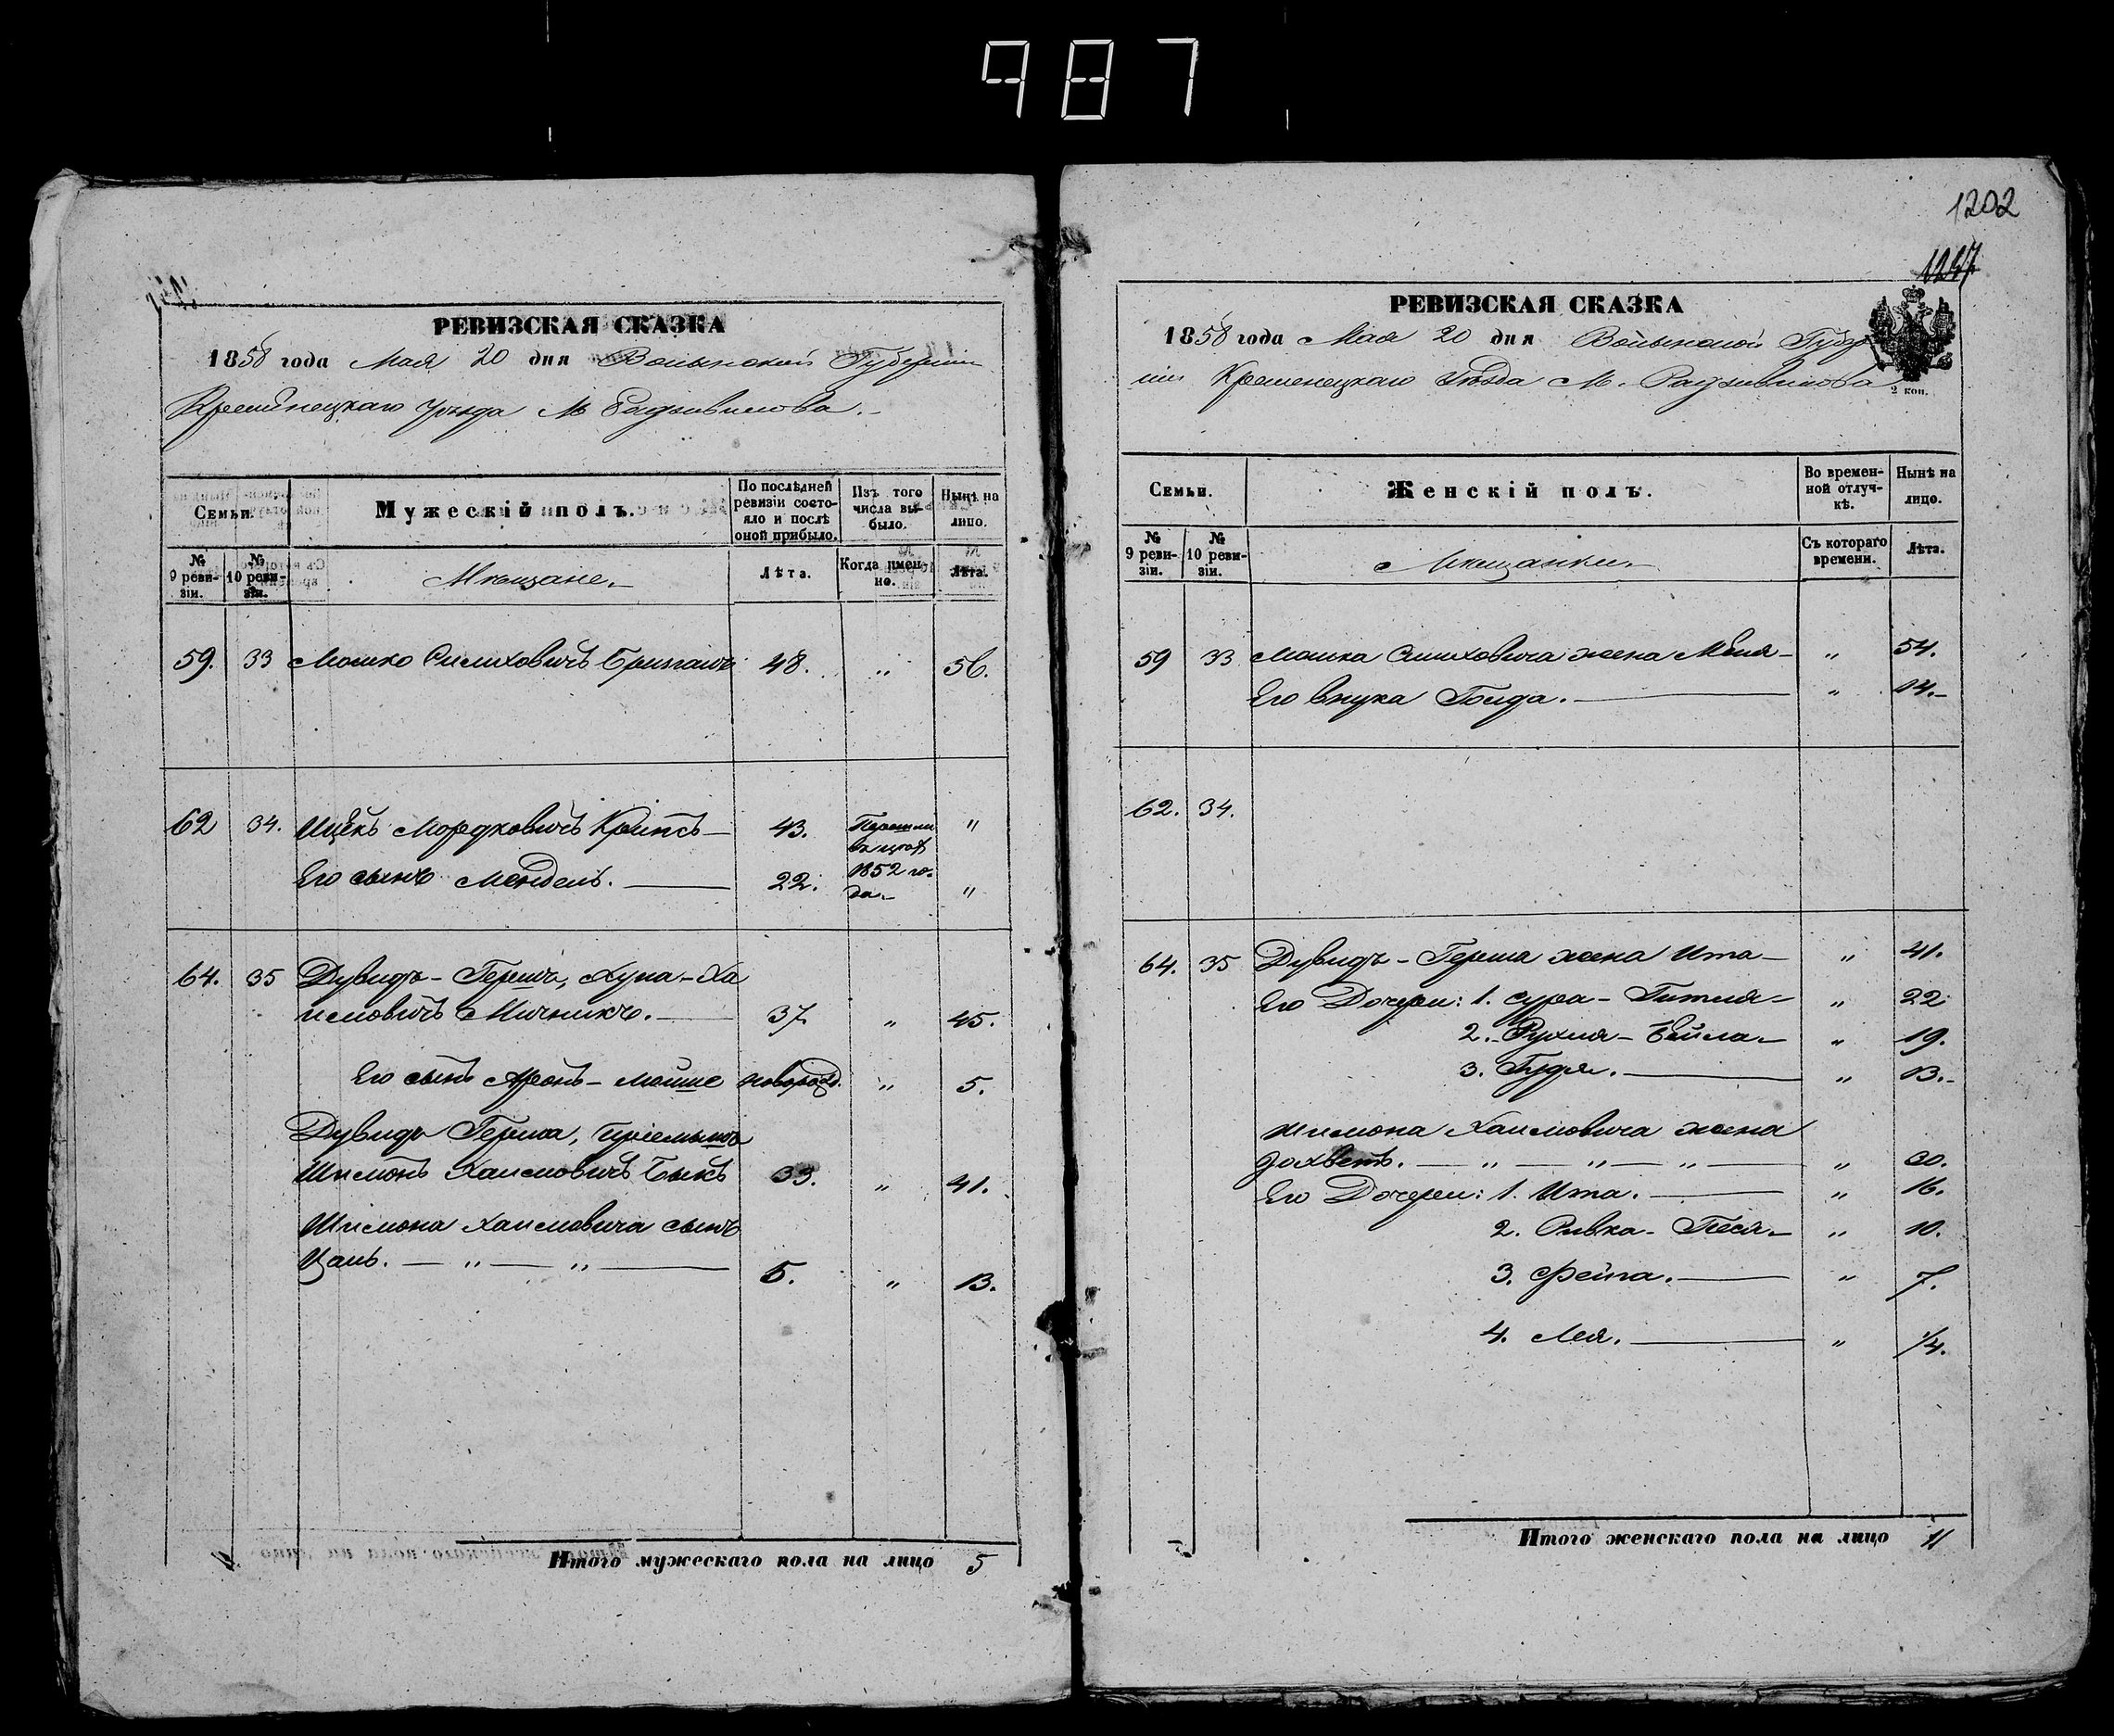 987
РЕВИЗСКАЯ СКАЗКА
1858 года Мая 20 дня Волынской Губернии
Кременецкаго Уѣзда М. Радзивилова.
Семьи.
Мужескій полъ.
По послѣдней ревизіи состояло и послѣ оной прибыло.
Изъ того числа выбыло.
Нынѣ на лицо.
№ 9 ревизіи.
№ 10 ревизіи.
Мѣщане.
Лѣта.
Когда именно.
Лѣта.
59. 33 Мошко Симховичъ 48. " 56.
62 34. Ицекъ Мордковичъ 43. "
Его сынъ Мендель. 22. 1852 года "
64. 35 Дувидъ-Гершъ, Хуна-Ха
имовичъ Мичникъ. 37 " 45.
Его сынъ Аронъ-Мойше новорожд. " 5.
Дувидъ Герша, пріемышъ
Шимонъ Хаимовичъ Быкъ 33. " 41.
Шимона Хаимовича сынъ
5. " 13.
Итого мужескаго пола на лицо 5
1202
РЕВИЗСКАЯ СКАЗКА
1858 года Мая 20 дня Волынской Губер
ніи Кременецкаго Уѣзда М. Радзивилова
2 коп.
Семьи.
Женскій полъ.
Во временной отлучкѣ.
Нынѣ на лицо.
№ 9 ревизіи.
№ 10 ревизіи.
Мѣщанки.
Съ котораго времени.
Лѣта.
59 33 Мошка Симховича жена " 54.
Его внука Голда. " 14.
62. 34.
64. 35 Дувидъ-Герша жена Ита " 41.
Его Дочери: 1. Сура-Гитля " 22
2. Рухля-Бейла " 19.
3. " 13.
Шимона Хаимовича жена
Іохветъ. " " " " 30.
Его Дочери: 1. Ита. " 16.
2. Ривка-Песя " 10.
3. Фейга. " 7.
4. Лея. " 1/4.
Итого женскаго пола на лицо 11